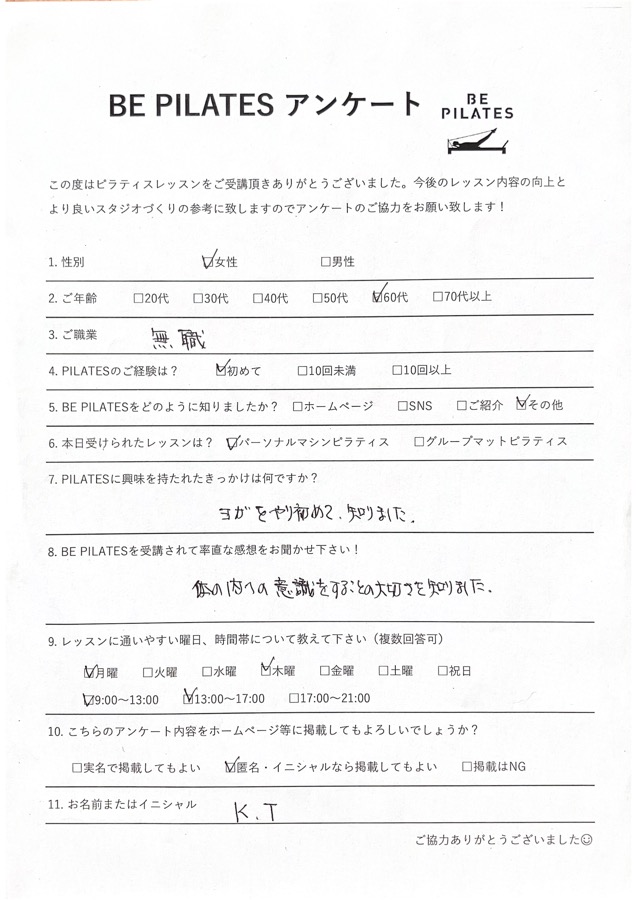 BE PILATES アンケート
BE
PILATES
この度はピラティスレッスンをご受講頂きありがとうございました。今後のレッスン内容の向上と
より良いスタジオづくりの参考に致しますのでアンケートのご協力をお願い致します！
1. 性別 ☑女性 □男性
2. ご年齢 □20代 □30代 □40代 □50代 ☑60代 □70代以上
3. ご職業 無職
4. PILATESのご経験は？ ☑初めて □10回未満 □10回以上
5. BE PILATESをどのように知りましたか？ □ホームページ □SNS □ご紹介 ☑その他
6. 本日受けられたレッスンは？ ☑パーソナルマシンピラティス □グループマットピラティス
7. PILATESに興味を持たれたきっかけは何ですか？
ヨガをやり初めて、知りました。
8. BE PILATESを受講されて率直な感想をお聞かせ下さい！
体の内への意識をすることの大切さを知りました。
9. レッスンに通いやすい曜日、時間帯について教えて下さい（複数回答可）
☑月曜 □火曜 □水曜 ☑木曜 □金曜 □土曜 □祝日
☑9:00〜13:00 ☑13:00〜17:00 □17:00〜21:00
10. こちらのアンケート内容をホームページ等に掲載してもよろしいでしょうか？
□実名で掲載してもよい ☑匿名・イニシャルなら掲載してもよい □掲載はNG
11. お名前またはイニシャル K.T
ご協力ありがとうございました☺